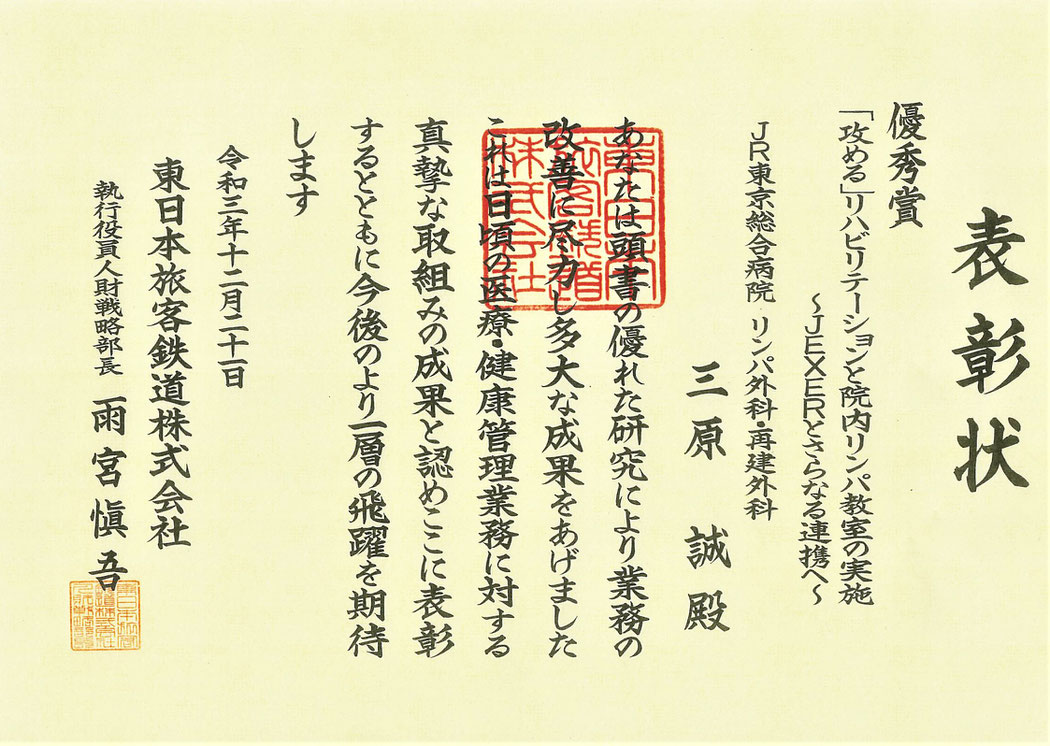 表彰状
優秀賞
「攻める」リハビリテーションと院内リンパ教室の実施
～JEXERとさらなる連携へ～
JR東京総合病院 リンパ外科・再建外科
三原 誠 殿
あなたは頭書の優れた研究により業務の
改善に尽力し多大な成果をあげました
これは日頃の医療・健康管理業務に対する
真摯な取組みの成果と認めここに表彰
するとともに今後のより一層の飛躍を期待
します
令和三年十二月二十一日
東日本旅客鉄道株式会社
執行役員人財戦略部長 雨宮愼吾
東日本
旅客鉄道
株式会社